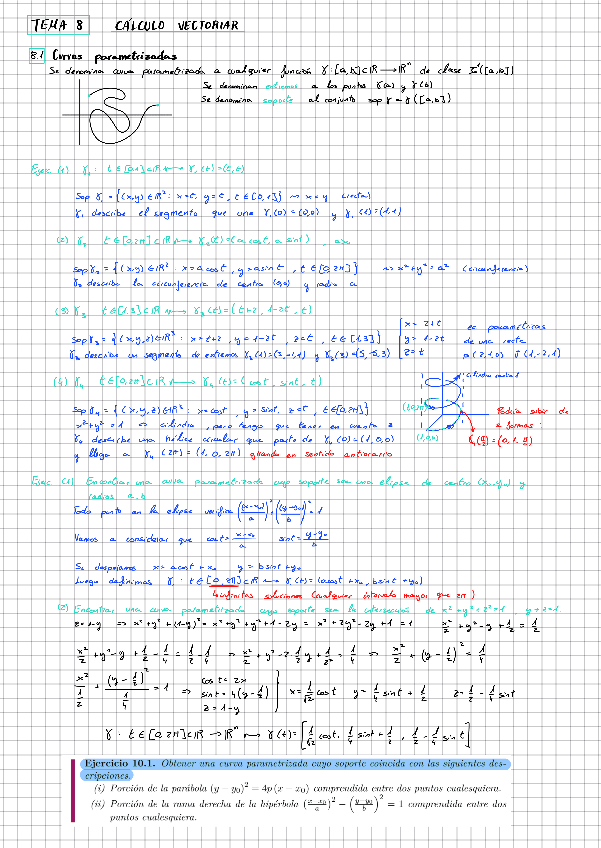 TEMA 8 CÁLCULO VECTORIAL
8.1 Curvas parametrizadas
Se denomina curva parametrizada a cualquier función γ:[a,b]⊂ℝ⟶ℝⁿ de clase C¹([a,b])
Se denominan extremos a los puntos γ(a) y γ(b)
Se denomina soporte al conjunto sop γ = γ([a,b])
Ejec (1) γ₁: t∈[0,1]⊂ℝ ⟼ γ₁(t)=(t,t)
Sop γ₁ = {(x,y)∈ℝ²: x=t, y=t, t∈[0,1]} ⇒ x=y (recta)
γ₁ describe el segmento que une γ₁(0)=(0,0) y γ₁(1)=(1,1)
(2) γ₂ t∈[0,2π]⊂ℝ ⟼ γ₂(t)=(a cost, a sint),
sop γ₂ = {(x,y)∈ℝ²: x=a cost, y=a sint, t∈[0,2π]} ⇒ x²+y²=a² (circunferencia)
γ₂ describe la circunferencia de centro (0,0) y radio a
(3) γ₃ t∈[1,3]⊂ℝ ⟼ γ₃(t)=(t+2, 1-2t, t)
sop γ₃ = {(x,y,z)∈ℝ³: x=t+2, y=1-2t, z=t, t∈[1,3]}
γ₃ describe un segmento de extremos γ₃(1)=(3,-1,1) y γ₃(3)=(5,-5,3)
x=2+t
y=1-2t
z=t
ec paramétricas
de una recta
p(2,1,0) v̄(1,-2,1)
(4) γ₄ t∈[0,2π]⊂ℝ ⟼ γ₄(t)=(cost, sint, t)
sop γ₄ = {(x,y,z)∈ℝ³: x=cost, y=sint, z=t, t∈[0,2π]}
x²+y²=1 ⇒ cilindro, pero tengo que tener en cuenta z
γ₄ describe una hélice circular que parte de γ₄(0)=(1,0,0)
y llega a γ₄(2π)=(1,0,2π) girando en sentido antihorario
cilindro radio 1
(1,0,0)
Podría subir de
2 formas:
Ejec (1) Encontrar una curva parametrizada cuyo soporte sea una elipse de centro (x₀,y₀) y
radios a,b
Todo punto en la elipse verifica ((x-x₀)/a)²+((y-y₀)/b)²=1
Vamos a considerar que cost=(x-x₀)/a sint=(y-y₀)/b
Si despejamos x=acost+x₀ y=bsint+y₀
Luego definimos γ: t∈[0,2π]⊂ℝ ⟼ γ(t)=(acost+x₀, bsint+y₀)
infinitas soluciones (cualquier intervalo mayor que 2π)
(2) Encontrar una curva parametrizada cuyo soporte sea la intersección de x²+y²+z²=1 y+z=1
z=1-y ⇒ x²+y²+(1-y)²=x²+y²+y²+1-2y=x²+2y²-2y+1=1 x²/2+y²-y+1/2=1/2
x²/2+y²-y+1/2-1/4=1/2-1/4 ⇒ x²/2+y²-2·1/2y+1/2²=1/4 ⇒ x²/2+(y-1/2)²=1/4
x²/(1/2)+(y-1/2)²/(1/4)=1 ⇒ cost=2x sint=4(y-1/2) z=1-y } x=1/√2 cost y=1/4 sint+1/2 z=1/2-1/4 sint
γ: t∈[0,2π]⊂ℝ→ℝⁿ ⟼ γ(t)=[1/√2 cost, 1/4 sint+1/2, 1/2-1/4 sint]
Ejercicio 10.1. Obtener una curva parametrizada cuyo soporte coincida con las siguientes des-
cripciones.
(i) Porción de la parábola (y − y₀)² = 4p(x − x₀) comprendida entre dos puntos cualesquiera.
(ii) Porción de la rama derecha de la hipérbola ((x−x₀)/a)² − ((y−y₀)/b)² = 1 comprendida entre dos
puntos cualesquiera.